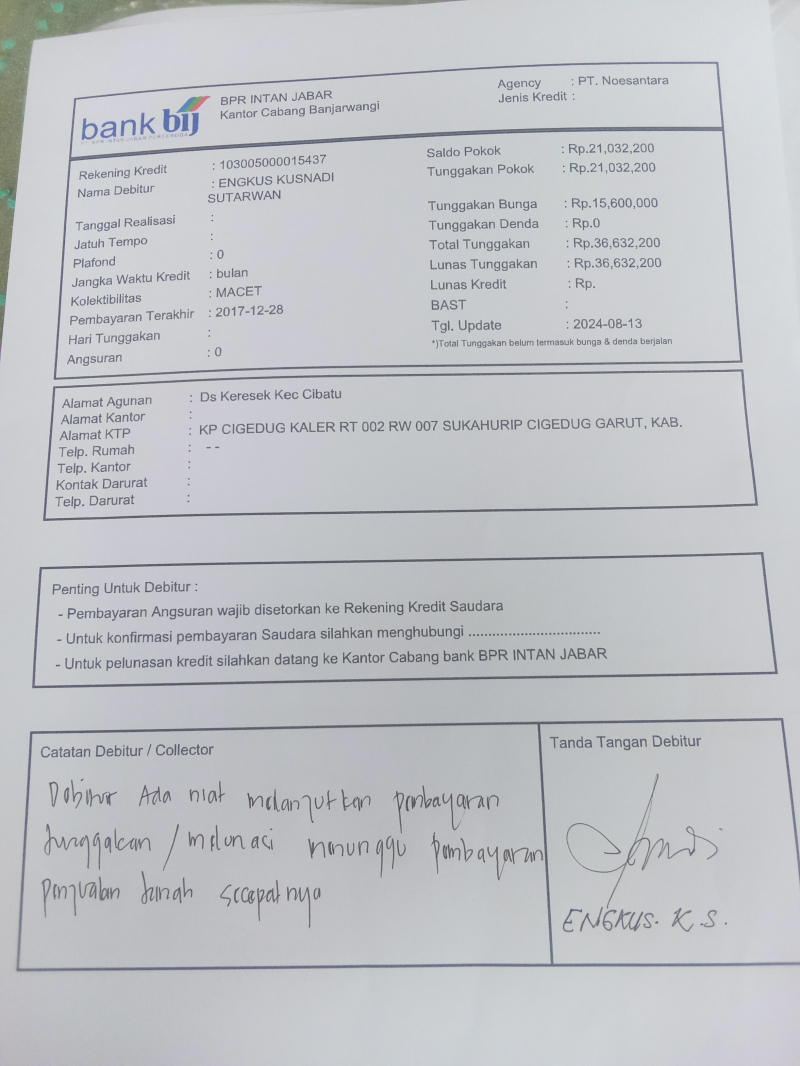 bank bij
BPR INTAN JABAR
Kantor Cabang Banjarwangi
Agency : PT. Noesantara
Jenis Kredit :
Rekening Kredit : 103005000015437
Nama Debitur : ENGKUS KUSNADI
SUTARWAN
Tanggal Realisasi :
Jatuh Tempo :
Plafond : 0
Jangka Waktu Kredit : bulan
Kolektibilitas : MACET
Pembayaran Terakhir : 2017-12-28
Hari Tunggakan :
Angsuran : 0
Saldo Pokok : Rp.21,032,200
Tunggakan Pokok : Rp.21,032,200
Tunggakan Bunga : Rp.15,600,000
Tunggakan Denda : Rp.0
Total Tunggakan : Rp.36,632,200
Lunas Tunggakan : Rp.36,632,200
Lunas Kredit : Rp.
BAST :
Tgl. Update : 2024-08-13
*)Total Tunggakan belum termasuk bunga & denda berjalan
Alamat Agunan : Ds Keresek Kec Cibatu
Alamat Kantor :
Alamat KTP : KP CIGEDUG KALER RT 002 RW 007 SUKAHURIP CIGEDUG GARUT, KAB.
Telp. Rumah : - -
Telp. Kantor :
Kontak Darurat :
Telp. Darurat :
Penting Untuk Debitur :
- Pembayaran Angsuran wajib disetorkan ke Rekening Kredit Saudara
- Untuk konfirmasi pembayaran Saudara silahkan menghubungi ..................................
- Untuk pelunasan kredit silahkan datang ke Kantor Cabang bank BPR INTAN JABAR
Catatan Debitur / Collector
Debitur Ada niat melanjutkan pembayaran
tunggakan / melunasi menunggu pembayaran
penjualan tanah secepatnya
Tanda Tangan Debitur
ENGKUS. K.S.